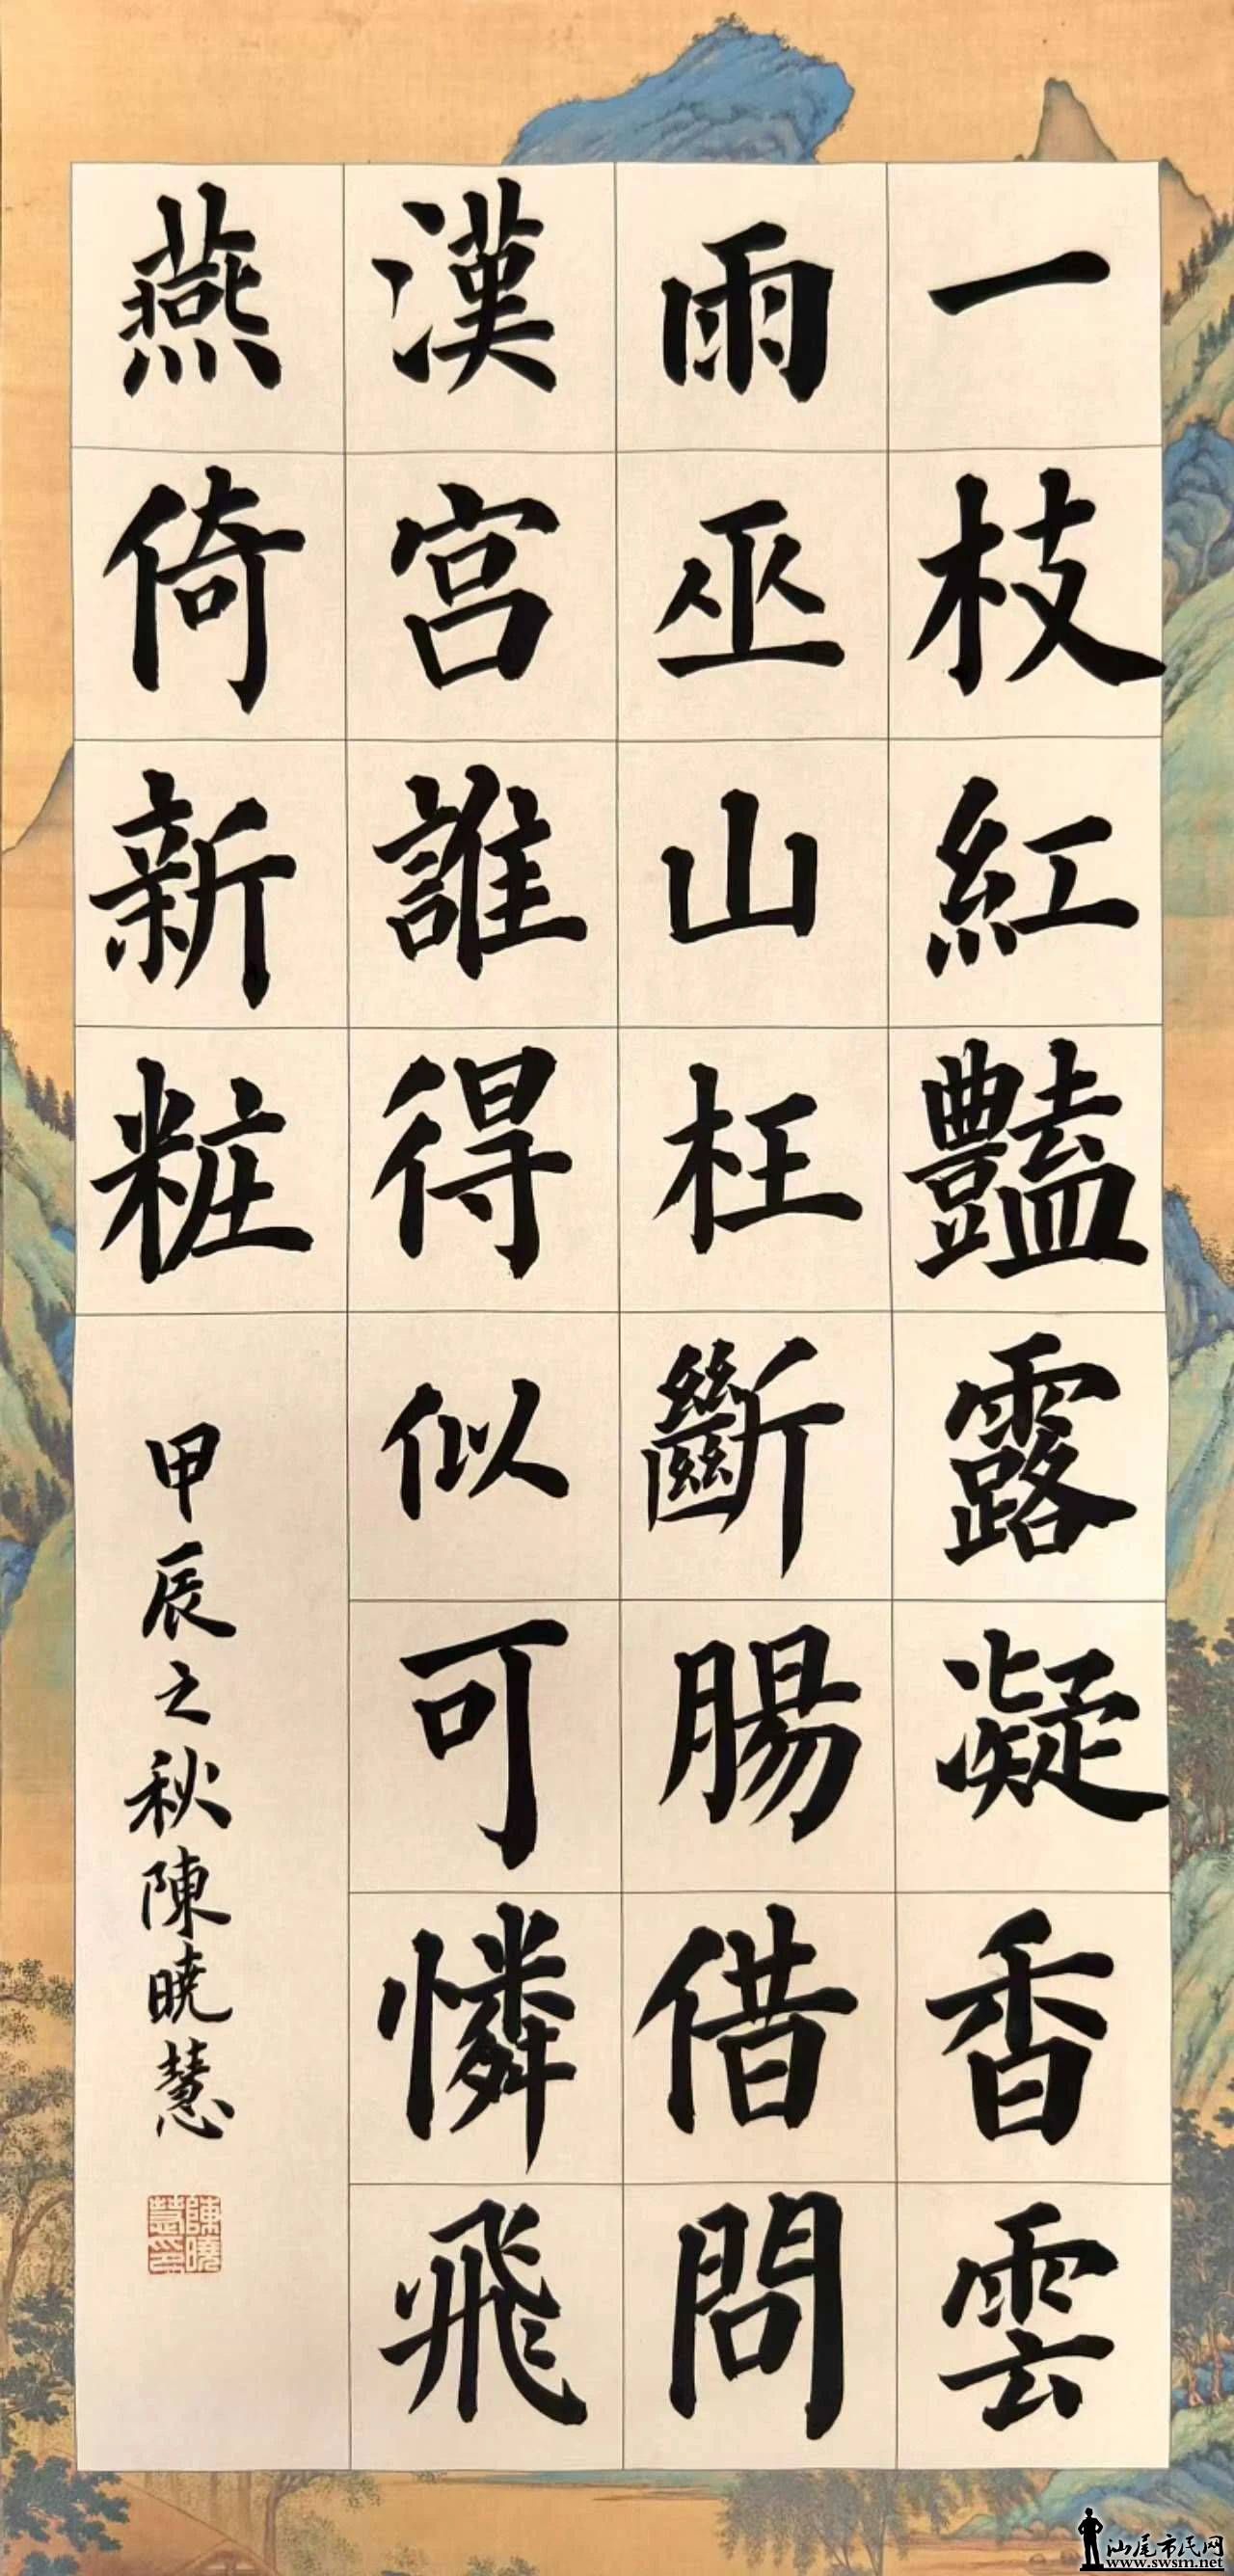 一枝紅豔露凝香雲
雨巫山枉斷腸借問
漢宮誰得似可憐飛
燕倚新粧
甲辰之秋陳曉慧
陳曉慧印
汕尾市民网
www.swsm.net